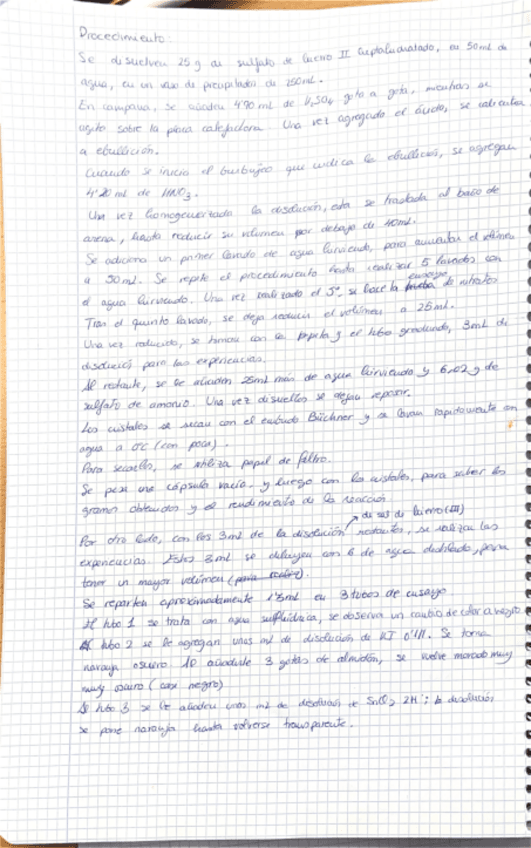 Procedimiento:
Se disuelven 25 g de sulfato de hierro II heptahidratado, en 50 mL de
agua, en un vaso de precipitados de 250mL.
En campana, se añaden 4'70 mL de H₂SO₄ gota a gota, mientras se
agita sobre la placa calefactora. Una vez agregado el ácido, se calienta
a ebullición.
Cuando se inicia el burbujeo que indica la ebullición, se agregan
4'20 mL de HNO₃.
Una vez homogeneizada la disolución, esta se traslada al baño de
arena, hasta reducir su volumen por debajo de 40mL.
Se adiciona un primer lavado de agua hirviendo, para aumentar el volumen
a 50mL. Se repite el procedimiento hasta realizar 5 lavados con
el agua hirviendo. Una vez realizado el 5º, se hace la ensayo de nitratos
Tras el quinto lavado, se deja reducir el volumen a 25mL.
Una vez reducido, se toman con la pipeta y el tubo graduado, 3mL de
disolución para las experiencias.
Al restante, se le añaden 25ml más de agua hirviendo y 6,02 g de
sulfato de amonio. Una vez disueltos se dejan reposar.
Los cristales se secan con el embudo Büchner y se lavan rapidamente con
agua a 0ºC (con poca).
Para secarlos, se utiliza papel de filtro.
Se pesa una cápsula vacía, y luego con los cristales, para saber los
gramos obtenidos y el rendimiento de la reacción.
de sal de hierro (III)
Por otro lado, con los 3ml de la disolución restantes, se realizan las
experiencias. Estos 3ml se diluyen con 6 de agua destilada, para
tener un mayor volumen
Se reparten aproximadamente 1'5ml en 3 tubos de ensayo
Al tubo 1 se trata con agua sulfhídrica, se observa un cambio de color a negro
Al tubo 2 se le agregan unos ml de disolución de KI 0'1M. Se torna
naranja oscuro. Al añadirle 3 gotas de almidón, se vuelve morado muy
muy oscuro (casi negro)
Al tubo 3 se le añaden unos ml de disolución de SnCl₂ 2M; la disolución
se pone naranja hasta volverse transparente.